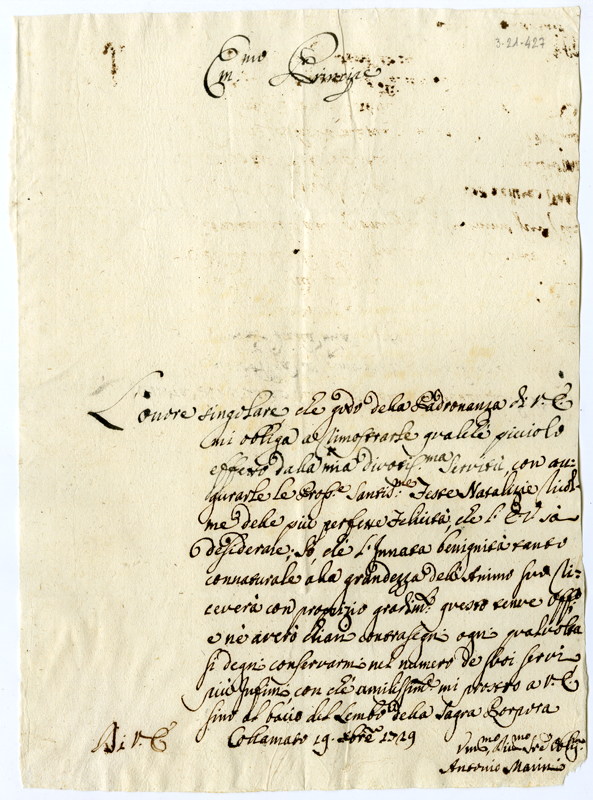 3-21-427
Em:mo Principe
L'onore singolare che godo della Padronanza di V. E
mi obliga a dimostrarle qualche picciolo
effetto della mia divotis:ma Servitù, con au-
gurarle le Pros:e Santis:me Feste Natalizie ricol-
me delle più perfette Felicità, che l'E.V. sà
desiderare; Sò che l'Innata benignità tanto
connaturale alla grandezza dell'Animo suo ri-
ceverà con propizio gradim:to questo tenue
e ne averò chiari contrasegni ogni qualvolta
si degni conservarmi nel numero de suoi servi
più Infimi con che umilissim:te mi prostro a V. E
sino al bacio del Lembo della Sagra Porpora
Collamato 19. Xbre 1729
Di V. E
Antonio Marini